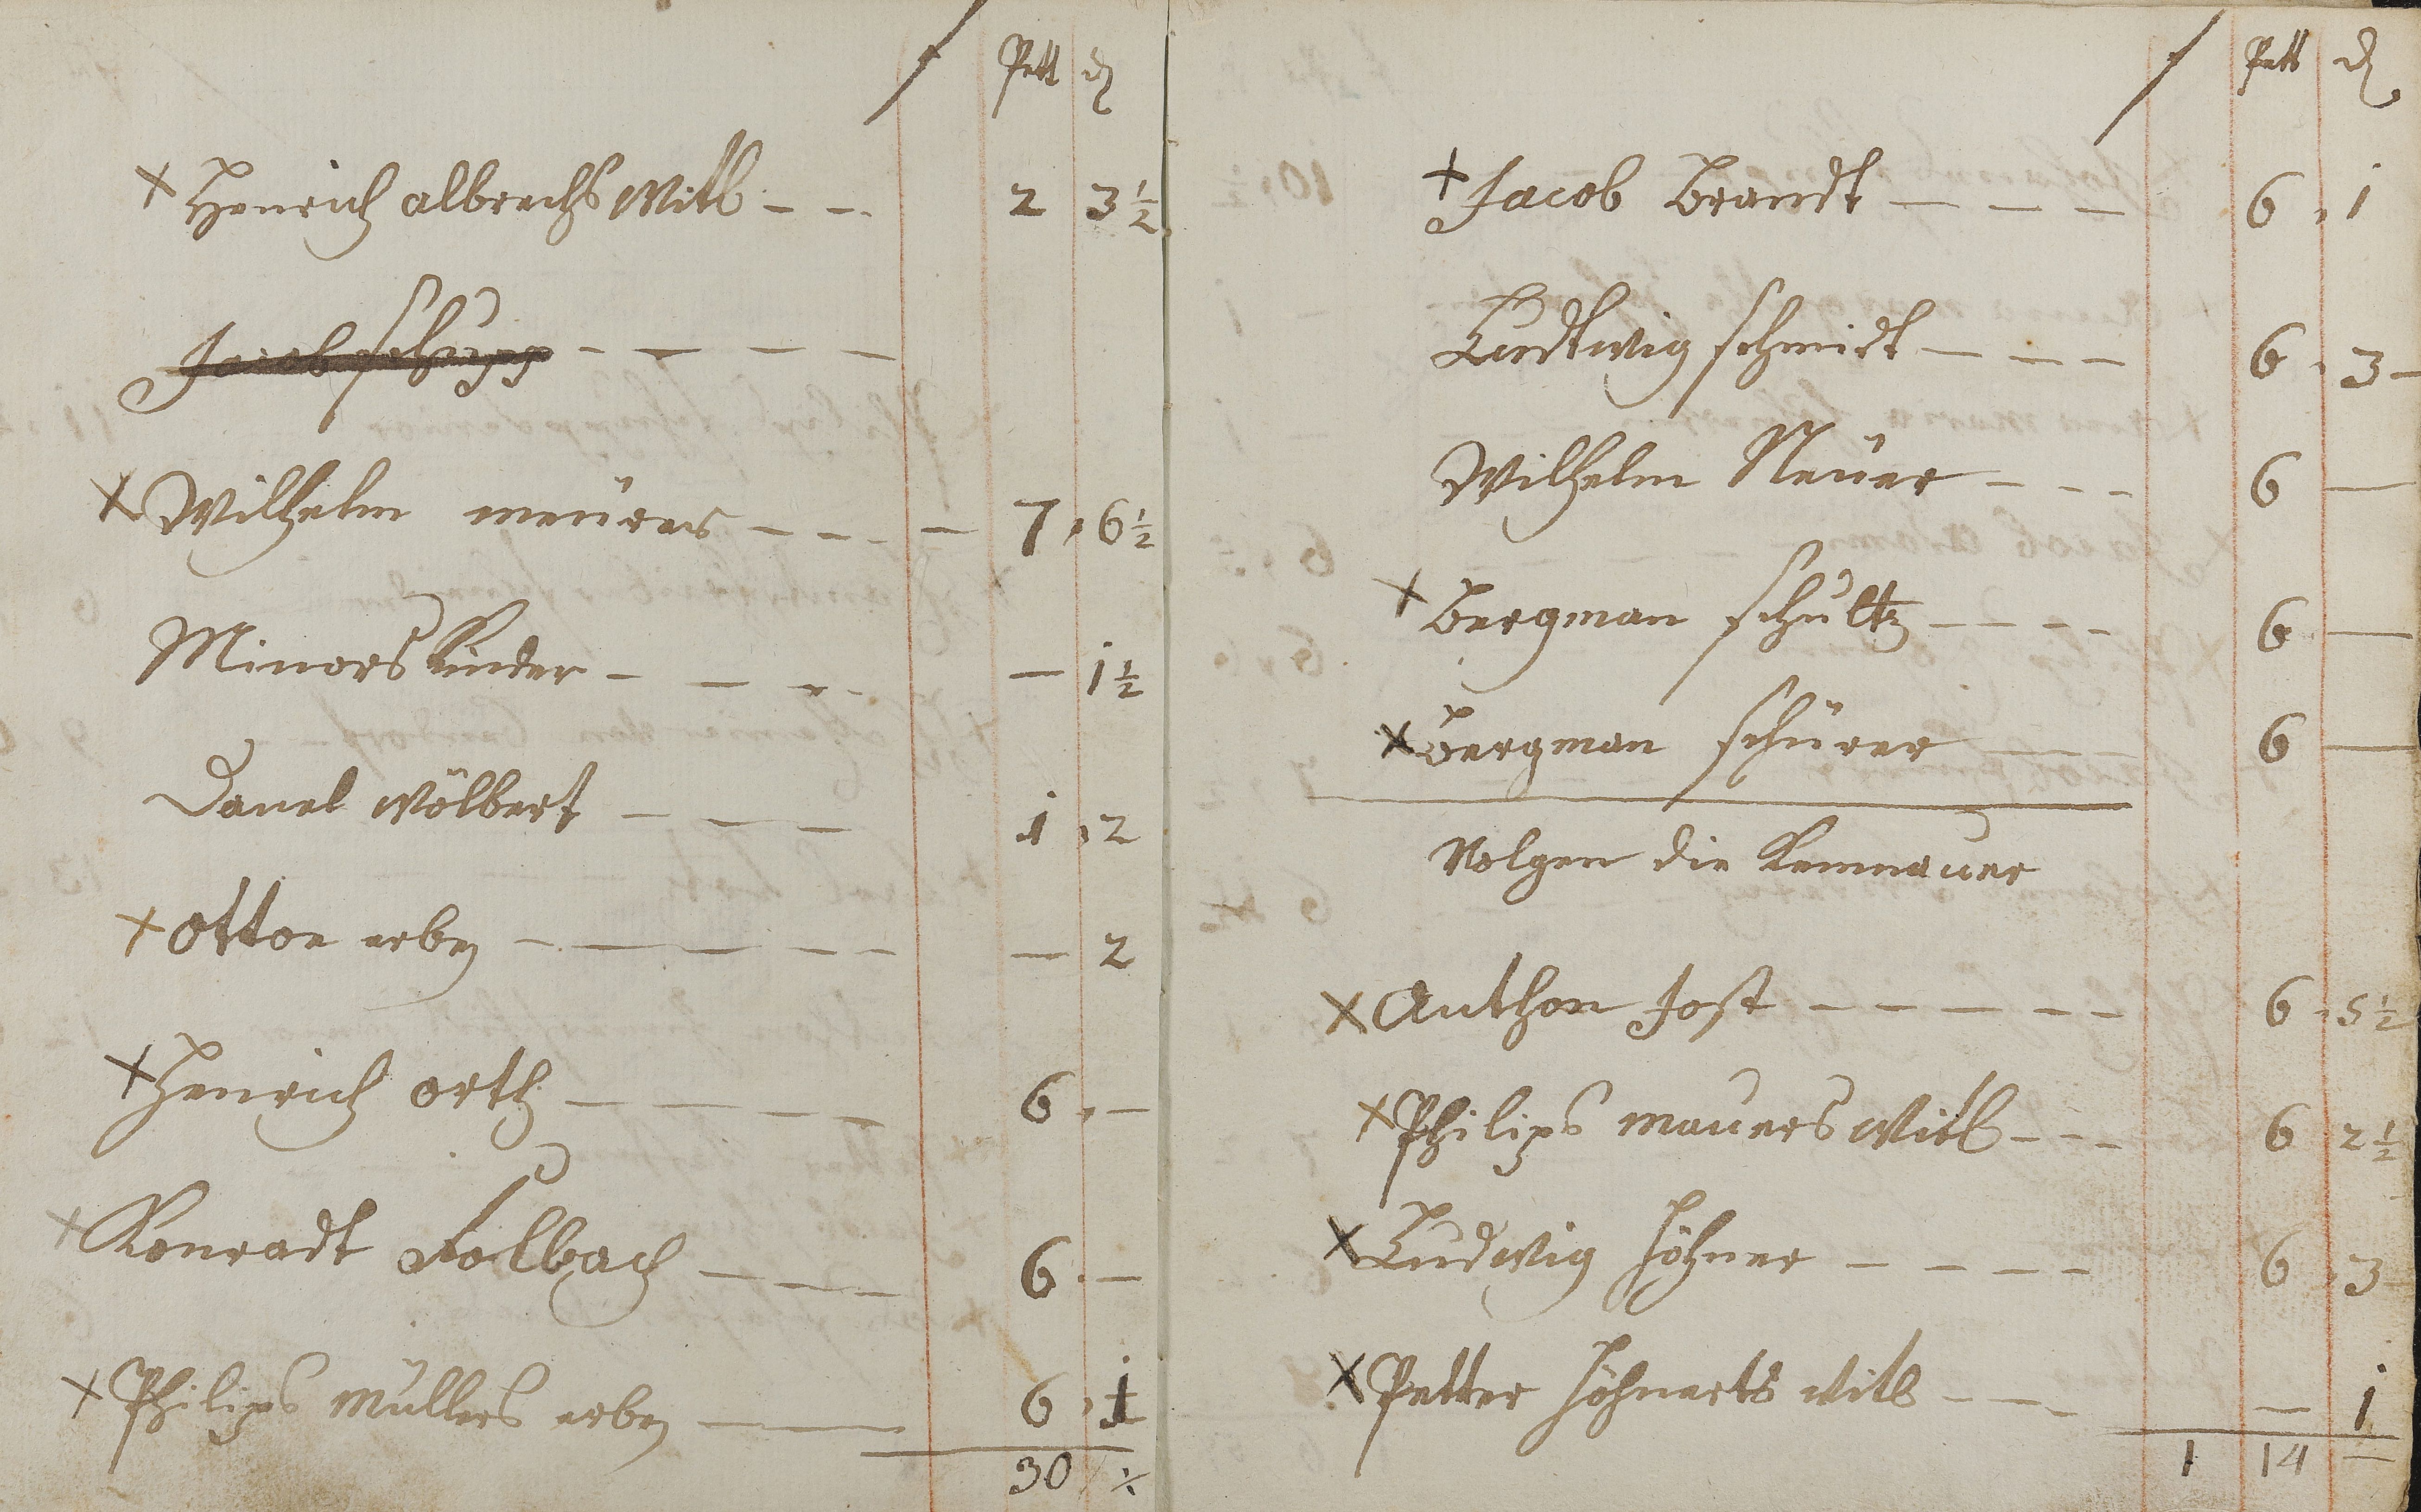 f Pett d
+ Henrich albrechts Witb - - 2 3½
Jacob schupp - - - -
+ Wilhelm meürer - - - - 7 . 6½
Minors Kinder - - - - — 1½
Danel Wölbert - - - 1 . 2
+ otton erben - - - - - — 2
+ Henrich orth - - - - 6 . —
+ Konradt Folbach - - - 6 . —
+ Philips müllers erben - - 6 . 1
30 ½
f Pett d
+ Jacob Brandt - - - 6 . 1
Ludtwig schmidt - - - 6 . 3 -
Wilhelm Neüer - - - 6 —
+ Bergman schultz - - - - 6 —
+ Bergman schürer - - 6 —
Volgen die Kemnauer
+ Anthon Jost - - - - - - 6 . 5½
+ Philips maürers Witb - - - 6 2½
+ Ludwig Höhner - - - - 6 . 3 -
+ Petter Höhnerts Witb - - - — 1
1 14 —